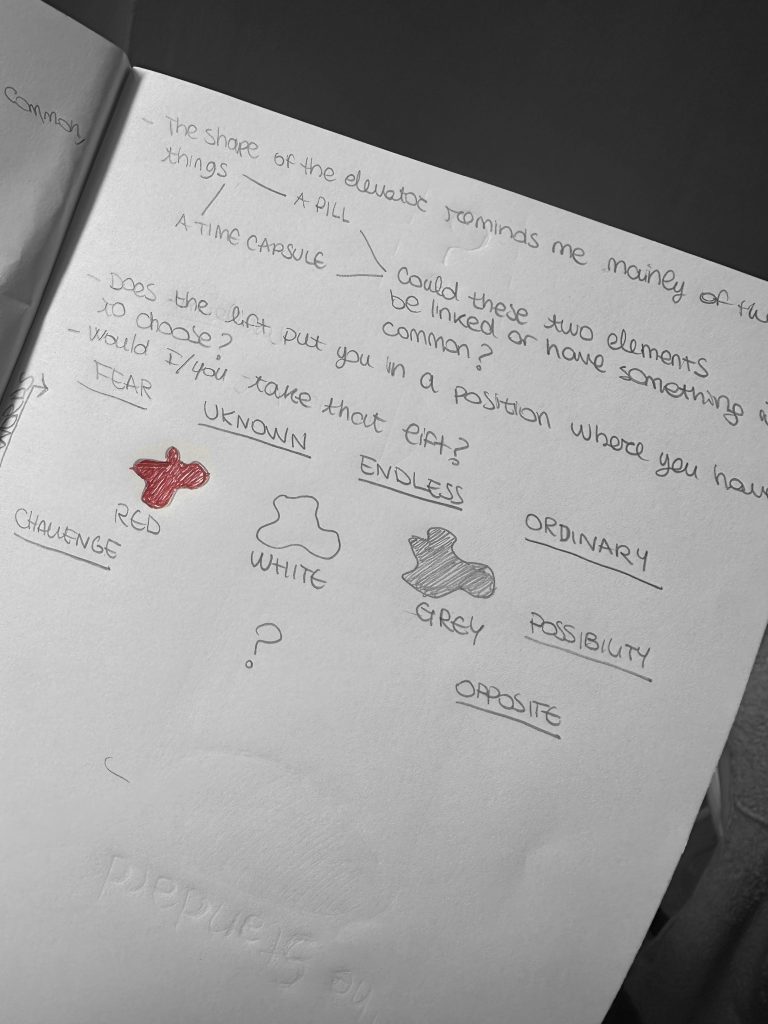 common,
- The shape of the elevator reminds me mainly of
things
A PILL
A TIME CAPSULE
Could these two elements
be linked or have something
common?
- Does the lift put you in a position where you have
to choose?
- Would I/you take that lift?
FEAR
UKNOWN
ENDLESS
ORDINARY
RED
WHITE
GREY
CHALLENGE
POSSIBILITY
?
OPPOSITE